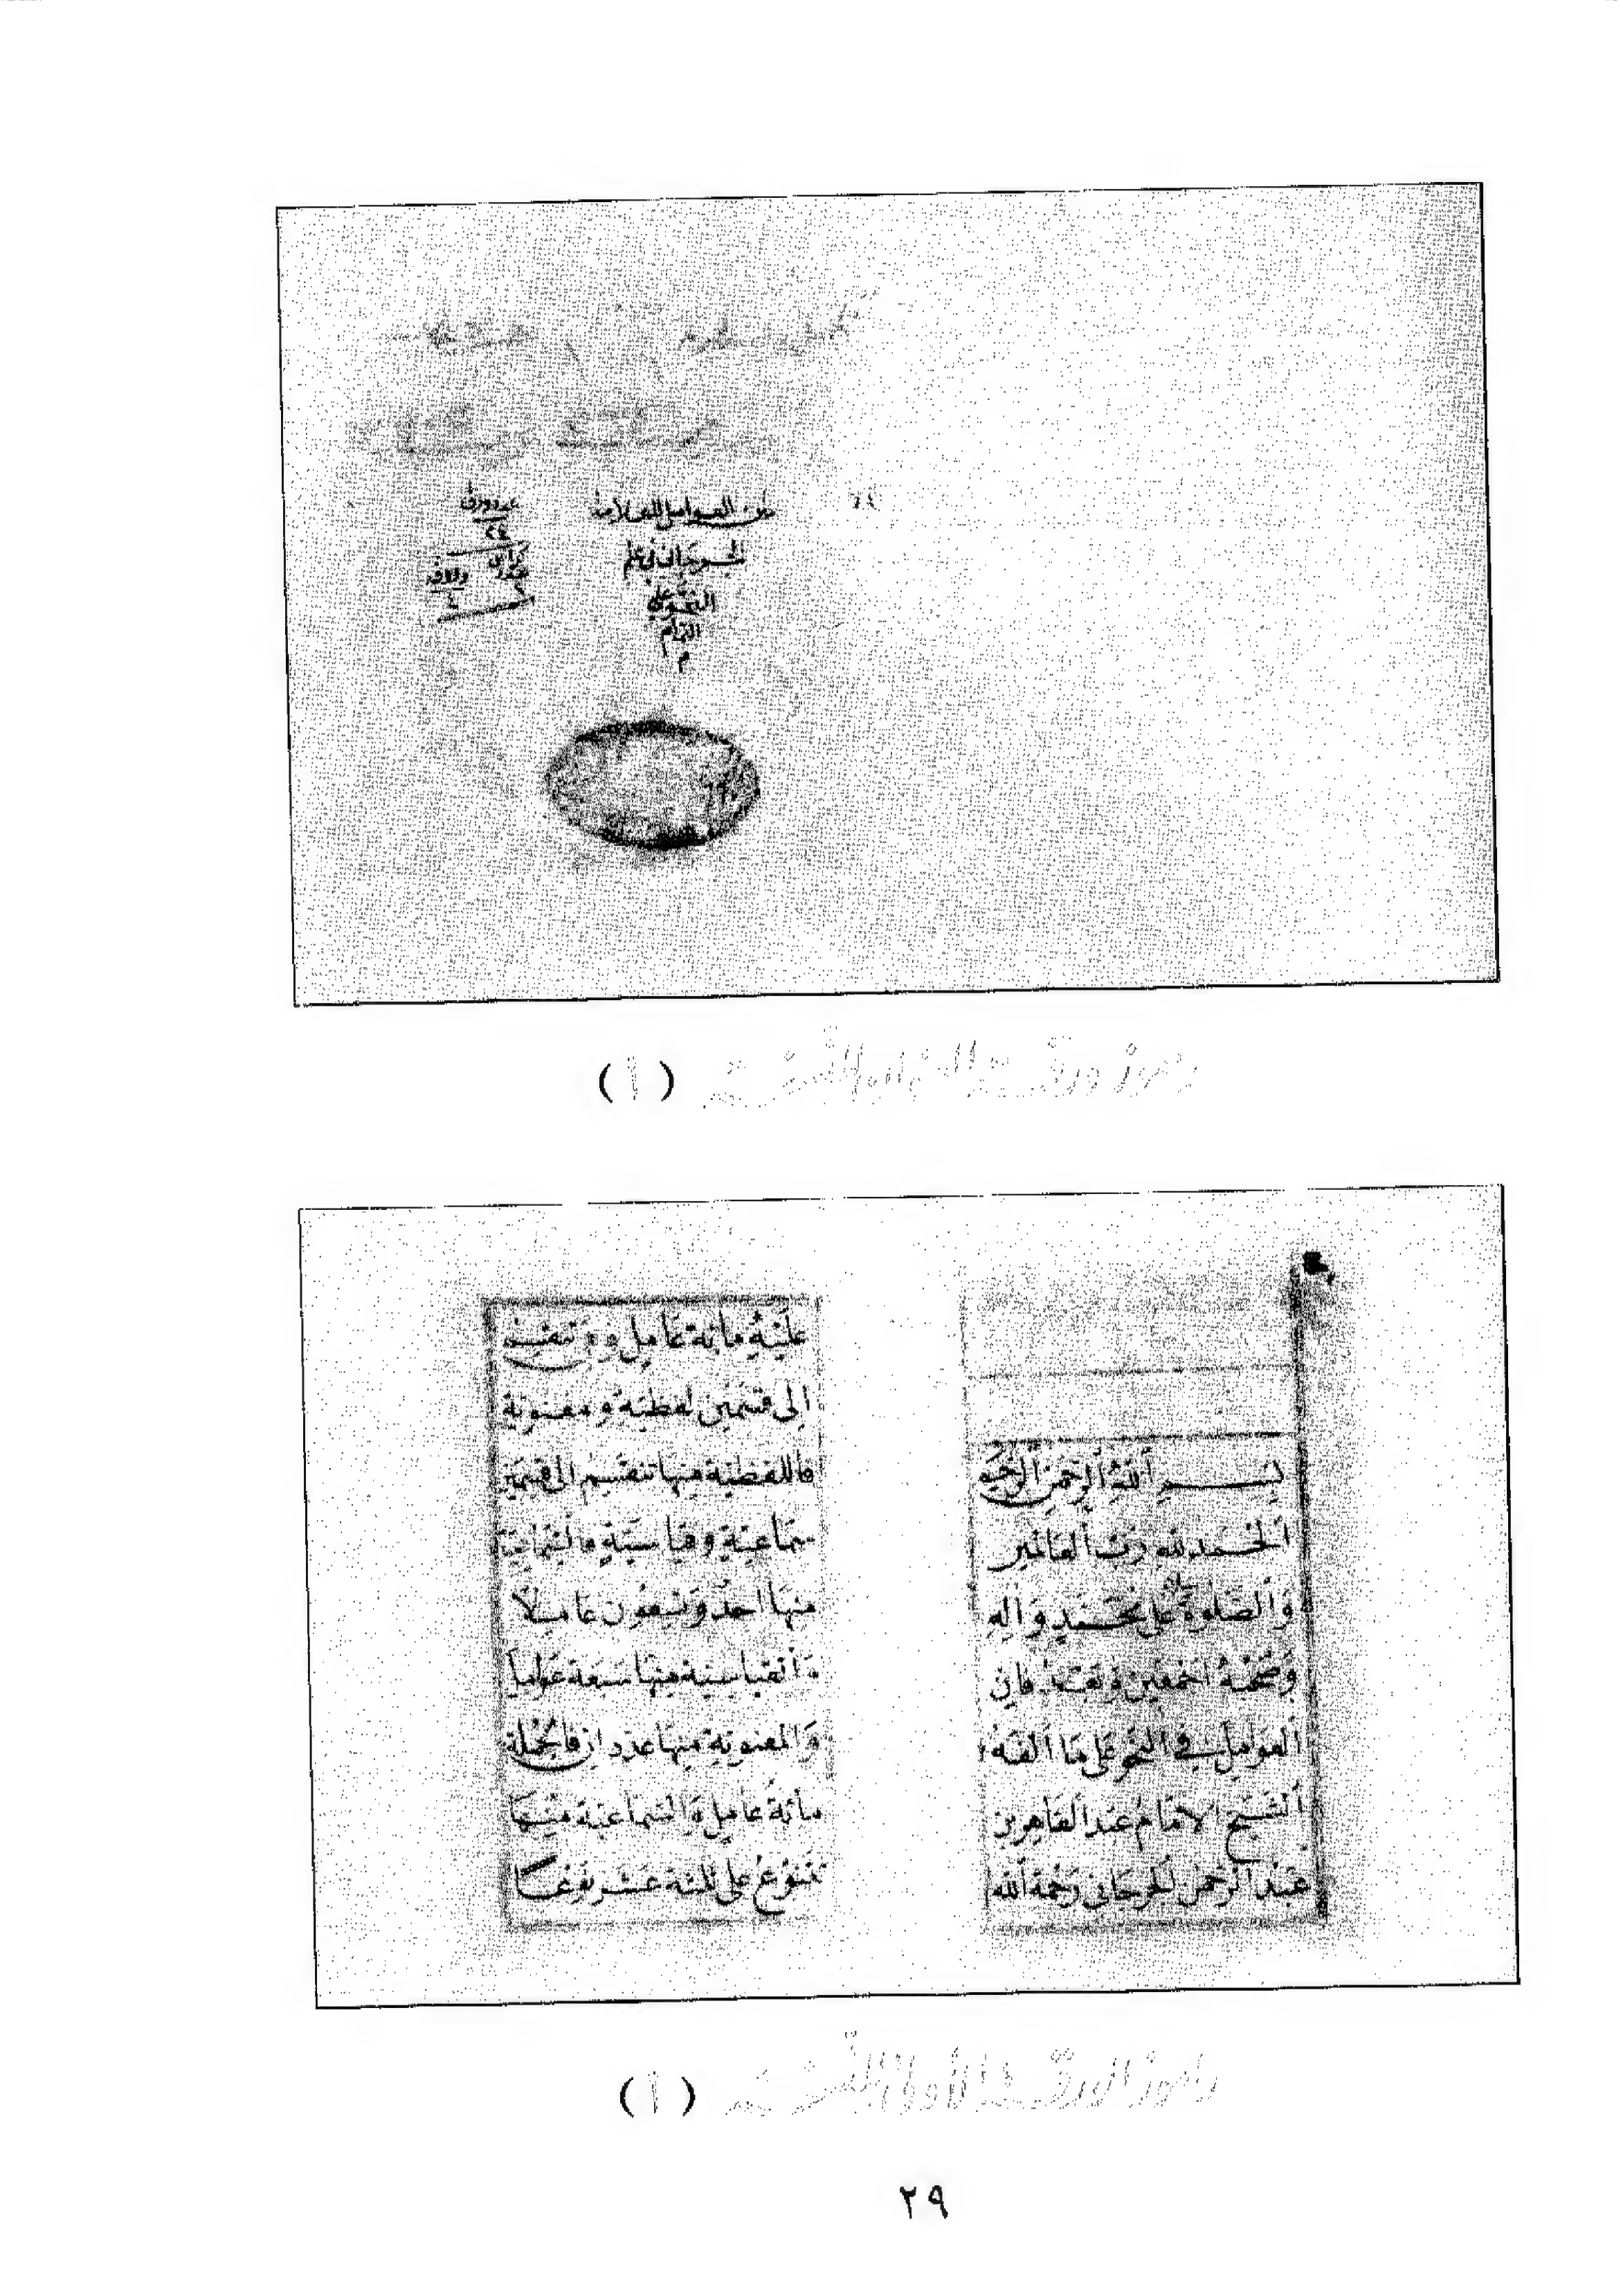 متن العوامل للعلامة
الجرجاني في علم
النحو على
التمام
م
عدد ورق
٢٤
( أ )
بسم الله الرحمن الرحيم
الحمد لله رب العالمين
والصلوة على محمد وآله
وصحبه اجمعين وبعد فان
العوامل في النحو على ما ألفه
الشيخ الامام عبد القاهر بن
عبد الرحمن الجرجاني رحمة الله
عليه مائة عامل وهي تنقسم
الى قسمين لفظية ومعنوية
فاللفظية منها تنقسم الى قسمين
سماعية وقياسية فالسماعية
منها احد وتسعون عاملا
والقياسية منها سبعة عوامل
والمعنوية منها عددان فالجملة
مائة عامل والسماعية منها
تتنوع على ثلثة عشر نوعا
( أ )
٢٩